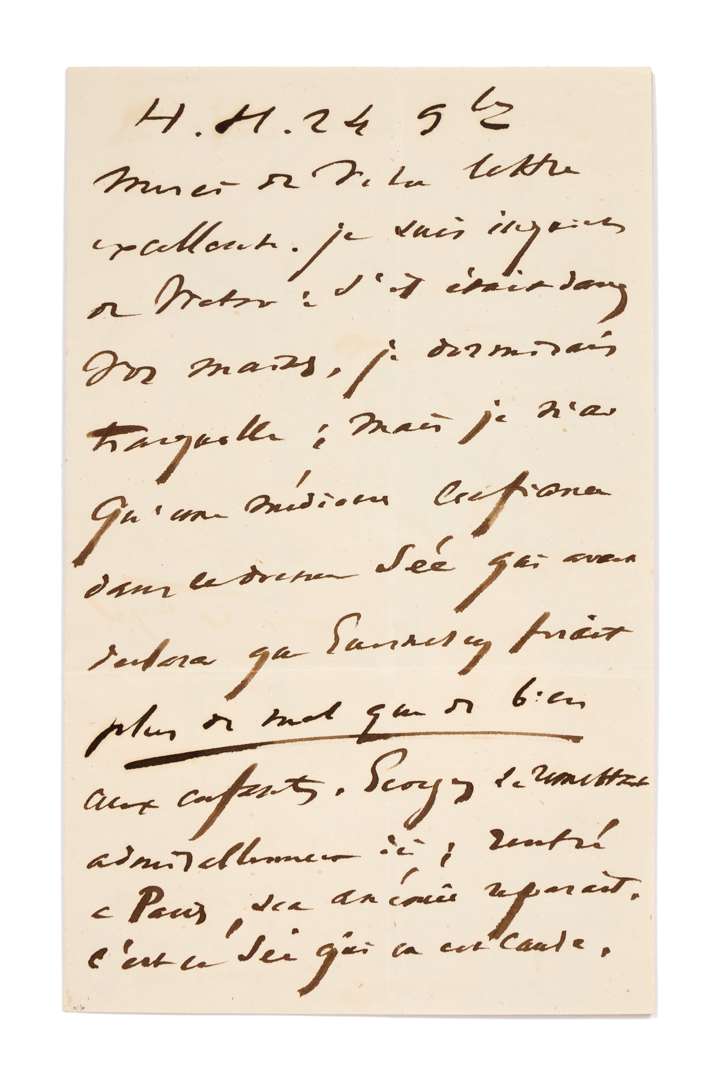 H.H. 24 9bre
Merci de votre lettre
excellente. je suis inquiet
de Victor ; s'il était dans
vos mains, je dormirais
tranquille ; mais je n'ai
qu'une médiocre confiance
dans le docteur Sée qui avait
déclaré que Guernesey ferait
plus de mal que de bien
aux enfants. Georges se remettait
admirablement ici ; rentré
à Paris, son anémie reparaît.
c'est ce Sée qui en est cause.